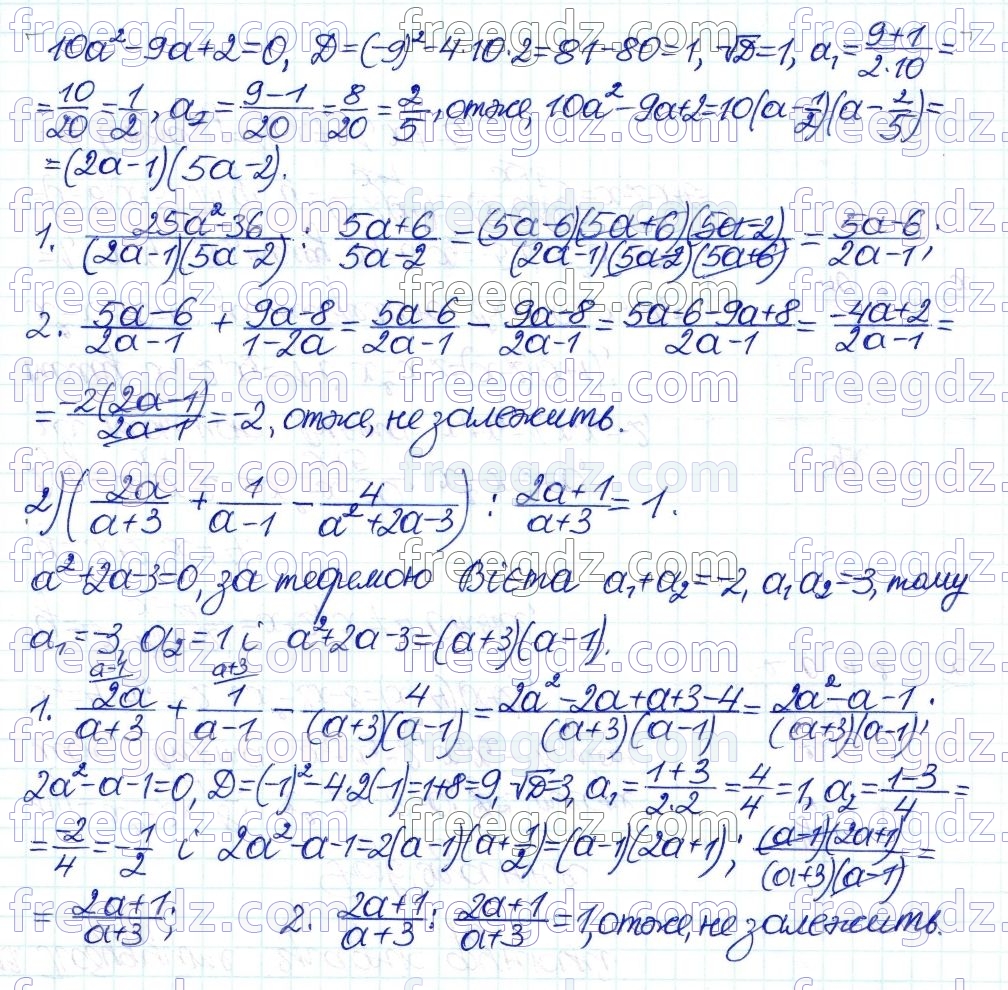 10a² - 9a + 2 = 0, D = (-9)² - 4·10·2 = 81 - 80 = 1, √D = 1, a₁ = (9+1)/(2·10) =
= 10/20 = 1/2, a₂ = (9-1)/20 = 8/20 = 2/5, отже, 10a² - 9a + 2 = 10(a - 1/2)(a - 2/5) =
= (2a - 1)(5a - 2).
1. (25a² - 36)/((2a - 1)(5a - 2)) : (5a + 6)/(5a - 2) = ((5a - 6)(5a + 6)(5a - 2))/((2a - 1)(5a - 2)(5a + 6)) = (5a - 6)/(2a - 1);
2. (5a - 6)/(2a - 1) + (9a - 8)/(1 - 2a) = (5a - 6)/(2a - 1) - (9a - 8)/(2a - 1) = (5a - 6 - 9a + 8)/(2a - 1) = (-4a + 2)/(2a - 1) =
= (-2(2a - 1))/(2a - 1) = -2, отже, не залежить.
2) (2a/(a + 3) + 1/(a - 1) - 4/(a² + 2a - 3)) : (2a + 1)/(a + 3) = 1.
a² + 2a - 3 = 0, за теоремою Вієта a₁ + a₂ = -2, a₁a₂ = -3, тому
a₁ = -3, a₂ = 1 і a² + 2a - 3 = (a + 3)(a - 1).
a-1 a+3
1. 2a/(a + 3) + 1/(a - 1) - 4/((a + 3)(a - 1)) = (2a² - 2a + a + 3 - 4)/((a + 3)(a - 1)) = (2a² - a - 1)/((a + 3)(a - 1));
2a² - a - 1 = 0, D = (-1)² - 4·2(-1) = 1 + 8 = 9, √D = 3, a₁ = (1+3)/(2·2) = 4/4 = 1, a₂ = (1-3)/4 =
= -2/4 = -1/2 і 2a² - a - 1 = 2(a - 1)(a + 1/2) = (a - 1)(2a + 1); ((a - 1)(2a + 1))/((a + 3)(a - 1)) =
= (2a + 1)/(a + 3); 2. (2a + 1)/(a + 3) : (2a + 1)/(a + 3) = 1, отже, не залежить.
freegdz.com